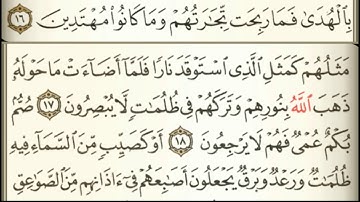 بِٱلْهُدَىٰ فَمَا رَبِحَت تِّجَٰرَتُهُمْ وَمَا كَانُوا۟ مُهْتَدِينَ ١٦
مَثَلُهُمْ كَمَثَلِ ٱلَّذِى ٱسْتَوْقَدَ نَارًا فَلَمَّآ أَضَآءَتْ مَا حَوْلَهُۥ
ذَهَبَ ٱللَّهُ بِنُورِهِمْ وَتَرَكَهُمْ فِى ظُلُمَٰتٍ لَّا يُبْصِرُونَ ١٧ صُمٌّۢ
بُكْمٌ عُمْىٌ فَهُمْ لَا يَرْجِعُونَ ١٨ أَوْ كَصَيِّبٍ مِّنَ ٱلسَّمَآءِ فِيهِ
ظُلُمَٰتٌ وَرَعْدٌ وَبَرْقٌ يَجْعَلُونَ أَصَٰبِعَهُمْ فِىٓ ءَاذَانِهِم مِّنَ ٱلصَّوَٰعِقِ